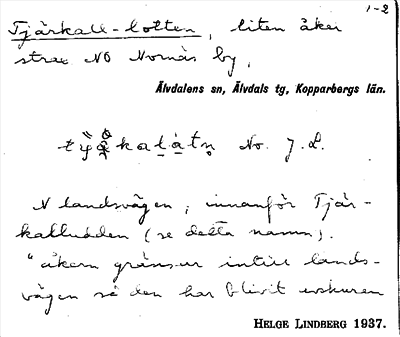 1-2
Tjärkall-lotten, liten åker
strax NO Nornäs by,
Älvdalens sn, Älvdals tg, Kopparbergs län.
No. J. L.
N landsvägen, innanför Tjär-
kalludden (se detta namn).
"åkern gränsar intill lands-
vägen så den har blivit
HELGE LINDBERG 1937.